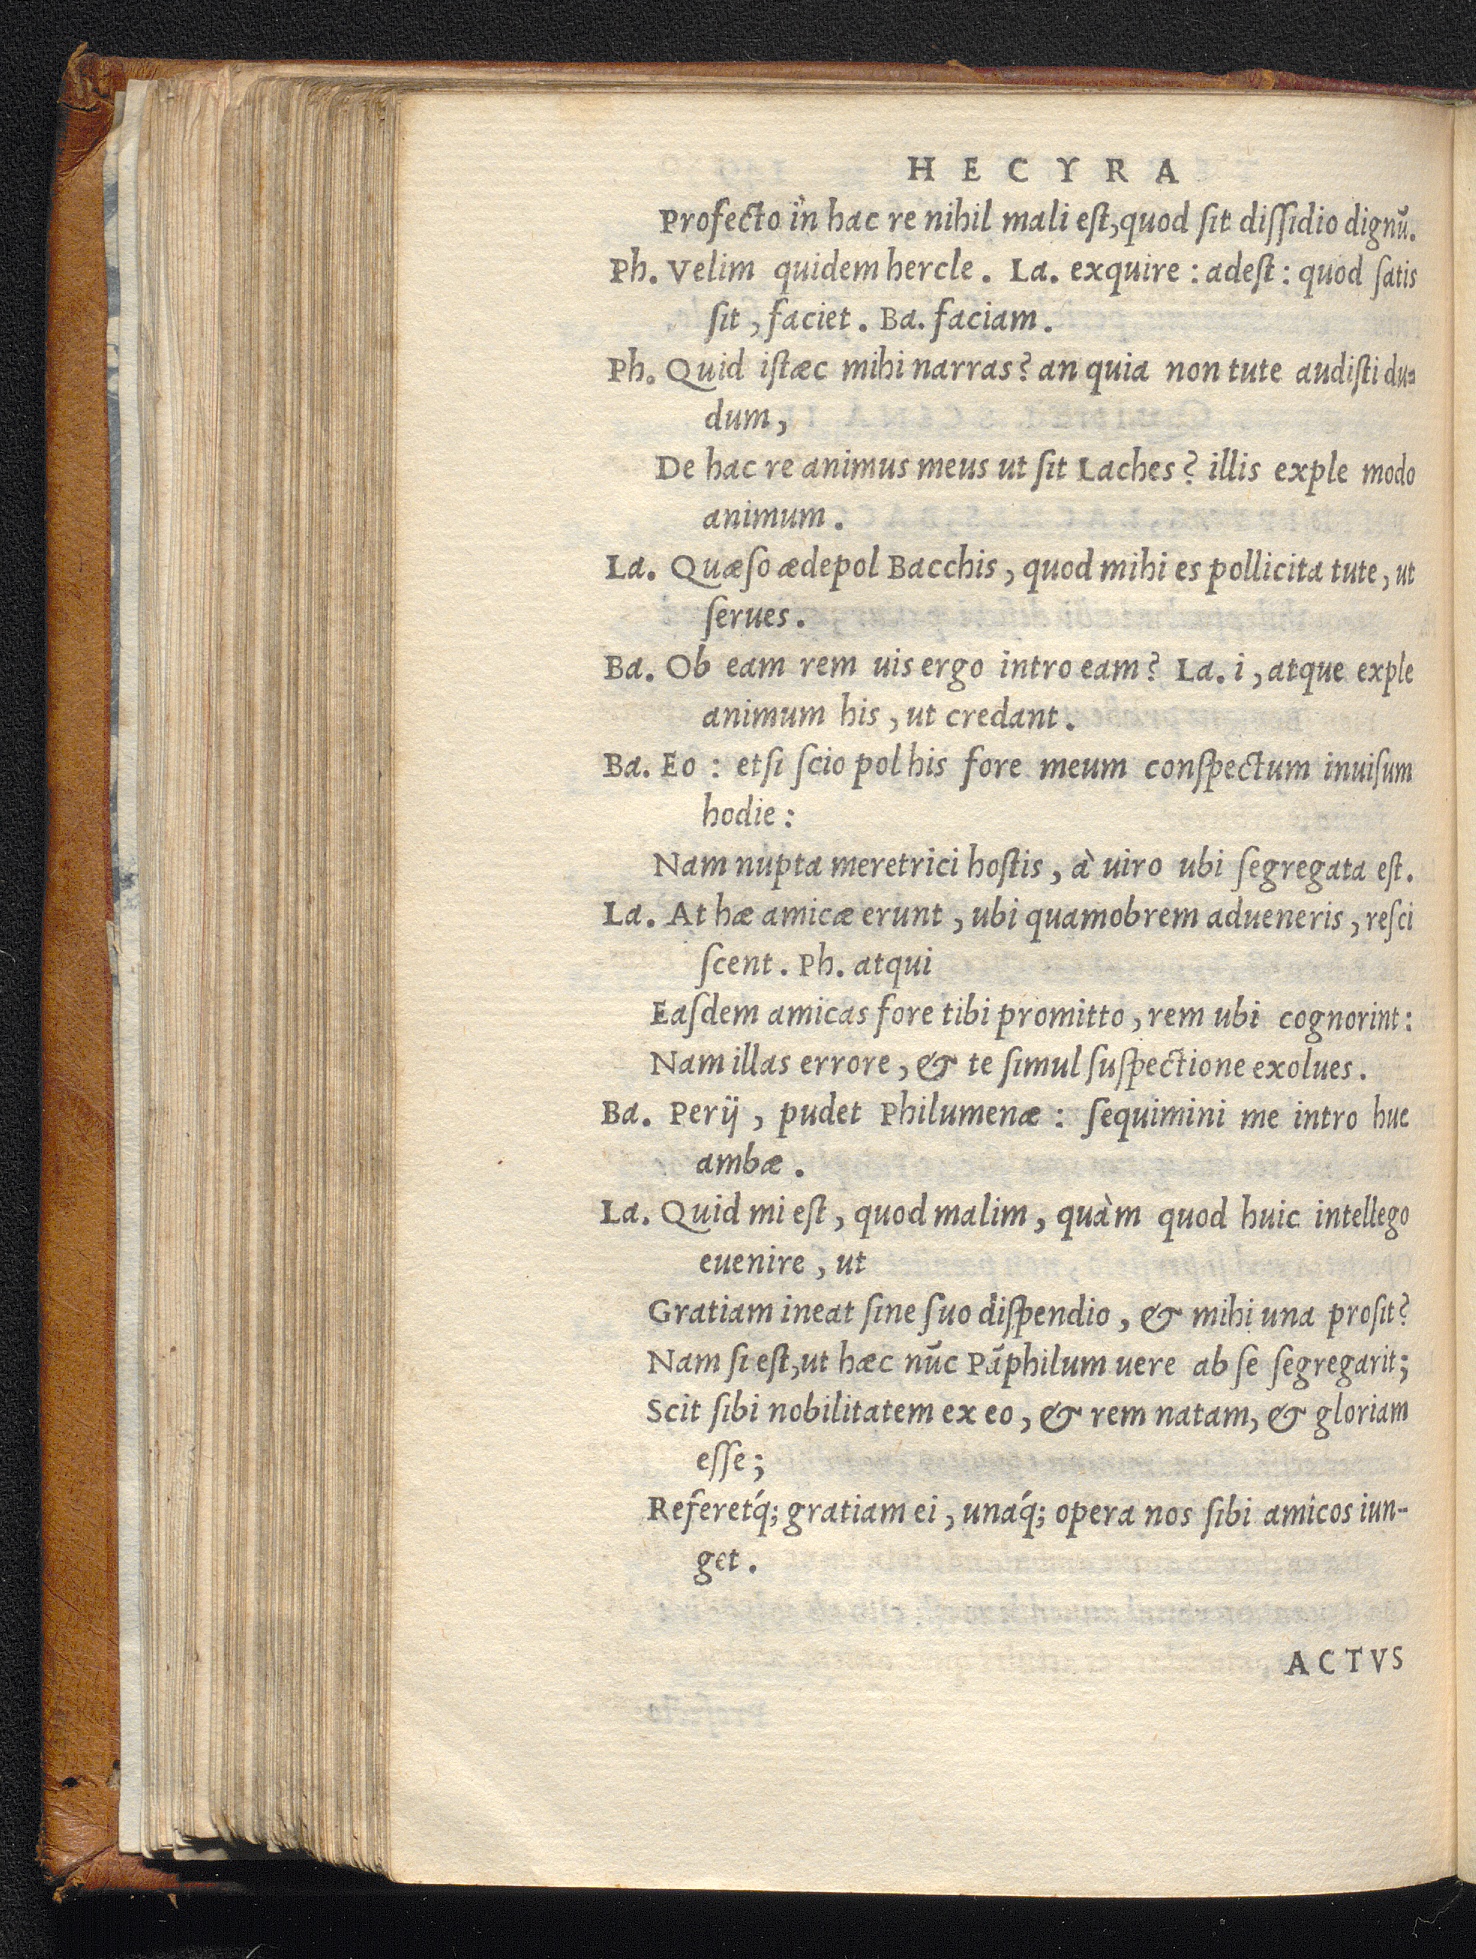 HECYRA
Profecto in hac re nihil mali eſt, quod ſit diſſidio dignū.
Ph. Velim quidem hercle. La. exquire: adeſt: quod ſatis
ſit, faciet. Ba. faciam.
Ph. Quid iſtæc mihi narras? an quia non tute audiſti du-
dum,
De hac re animus meus ut ſit Laches? illis exple modo
animum.
La. Quæſo ædepol Bacchis, quod mihi es pollicita tute, ut
ſerues.
Ba. Ob eam rem uis ergo intro eam? La. i, atque exple
animum his, ut credant.
Ba. Eo: etſi ſcio pol his fore meum conſpectum inuiſum
hodie:
Nam nupta meretrici hoſtis, à uiro ubi ſegregata eſt.
La. At hæ amicæ erunt, ubi quamobrem adueneris, reſci
ſcent. Ph. atqui
Eaſdem amicas fore tibi promitto, rem ubi cognorint:
Nam illas errore, & te ſimul ſuſpectione exolues.
Ba. Perij, pudet Philumenæ: ſequimini me intro huc
ambæ.
La. Quid mi eſt, quod malim, quàm quod huic intellego
euenire, ut
Gratiam ineat ſine ſuo diſpendio, & mihi una proſit?
Nam ſi eſt, ut hæc nūc Pāphilum uere ab ſe ſegregarit;
Scit ſibi nobilitatem ex eo, & rem natam, & gloriam
eſſe;
Referetq́; gratiam ei, unaq́; opera nos ſibi amicos iun-
get.
ACTVS